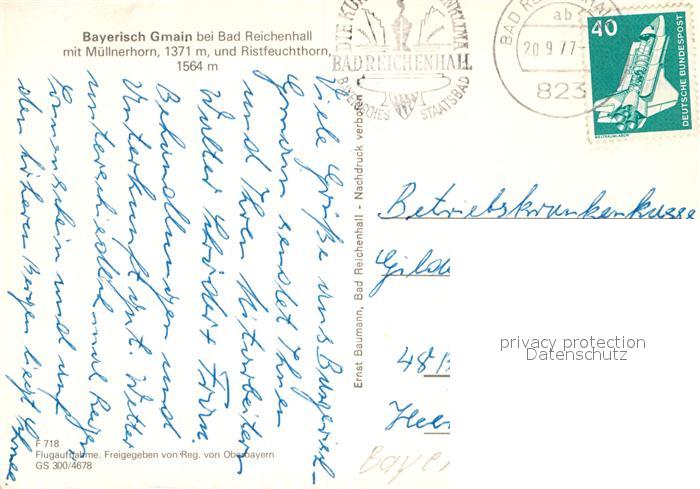 Bayerisch Gmain bei Bad Reichenhall
mit Müllnerhorn, 1371 m, und Ristfeuchthorn,
1564 m
BAD REICHENHALL
BAYERISCHES STAATSBAD
BAD REICHENHALL
ab
20.9.77-
823
40
DEUTSCHE BUNDESPOST
WELTRAUMLABOR
Viele Grüße aus Bayerisch-
Gmain sendet Ihnen
und Ihren Mitarbeitern
Walter Schröder + Frau.
Behandlungen und
Unterkunft gut. Wetter
unterschiedlich mal Regen
Sonnenschein und auf
den höheren Bergen liegt Schnee.
Ernst Baumann, Bad Reichenhall - Nachdruck verboten
Betriebskrankenkasse
Gilde
48
privacy protection
Datenschutz
F 718
Flugaufnahme. Freigegeben von Reg. von Oberbayern
GS 300/4678
Baye